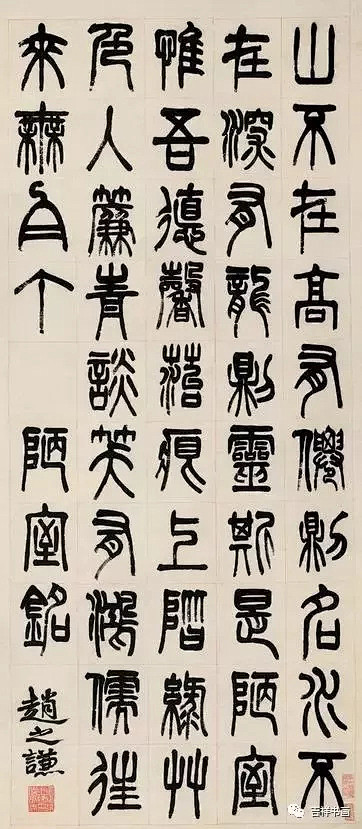 山不在高有僊則名水不
在深有龍則靈斯是陋室
惟吾德馨苔痕上階綠艸
色入簾青談笑有鴻儒往
來無白丁 陋室銘
趙之謙
吉祥书画